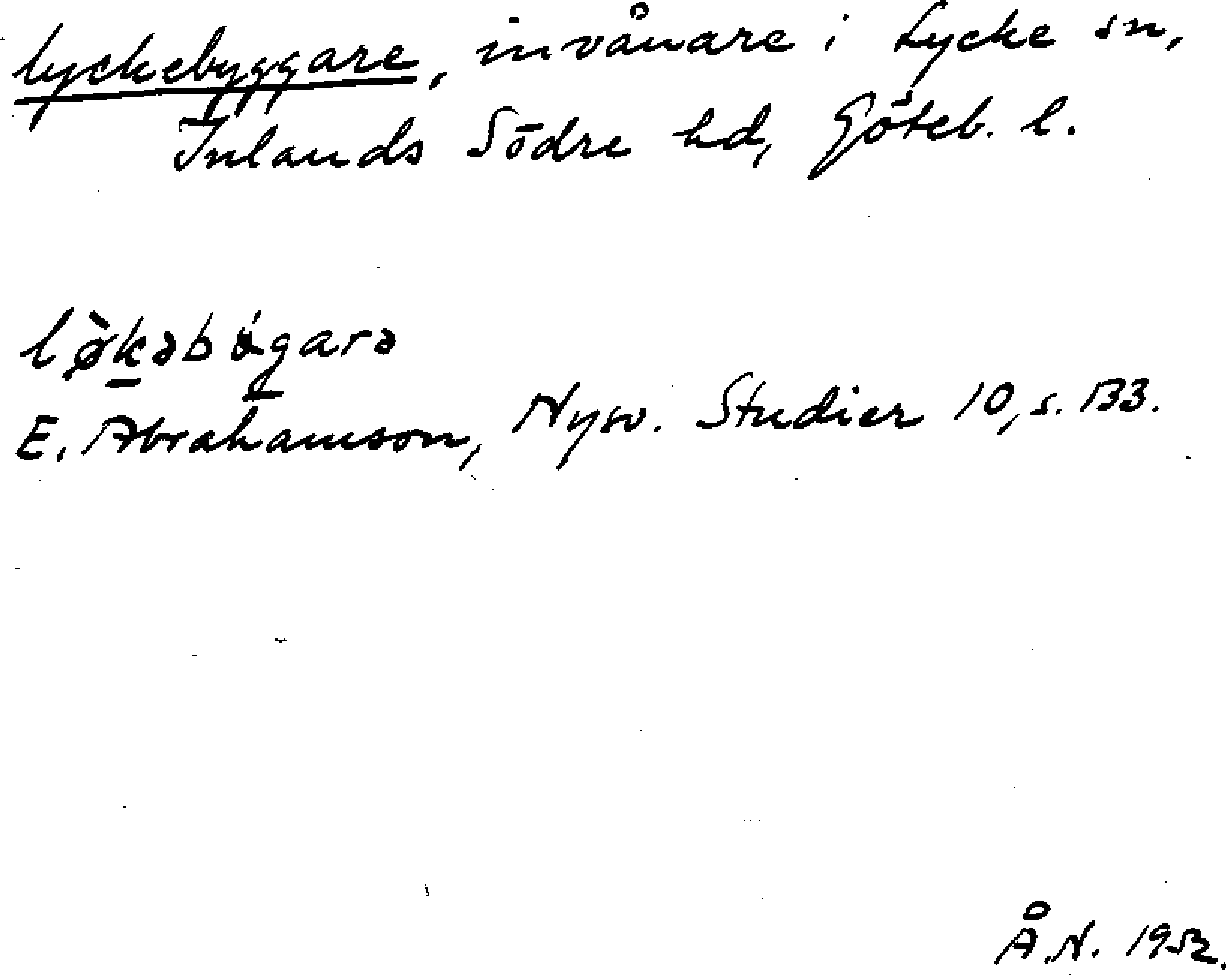 lyckebyggare, invånare i Lycke sn,
Inlands Södre hd, Göteb. l.
lø̀kəbýgarə
E. Abrahamson, Nysv. Studier 10, s. 133.
Å.N. 1952.